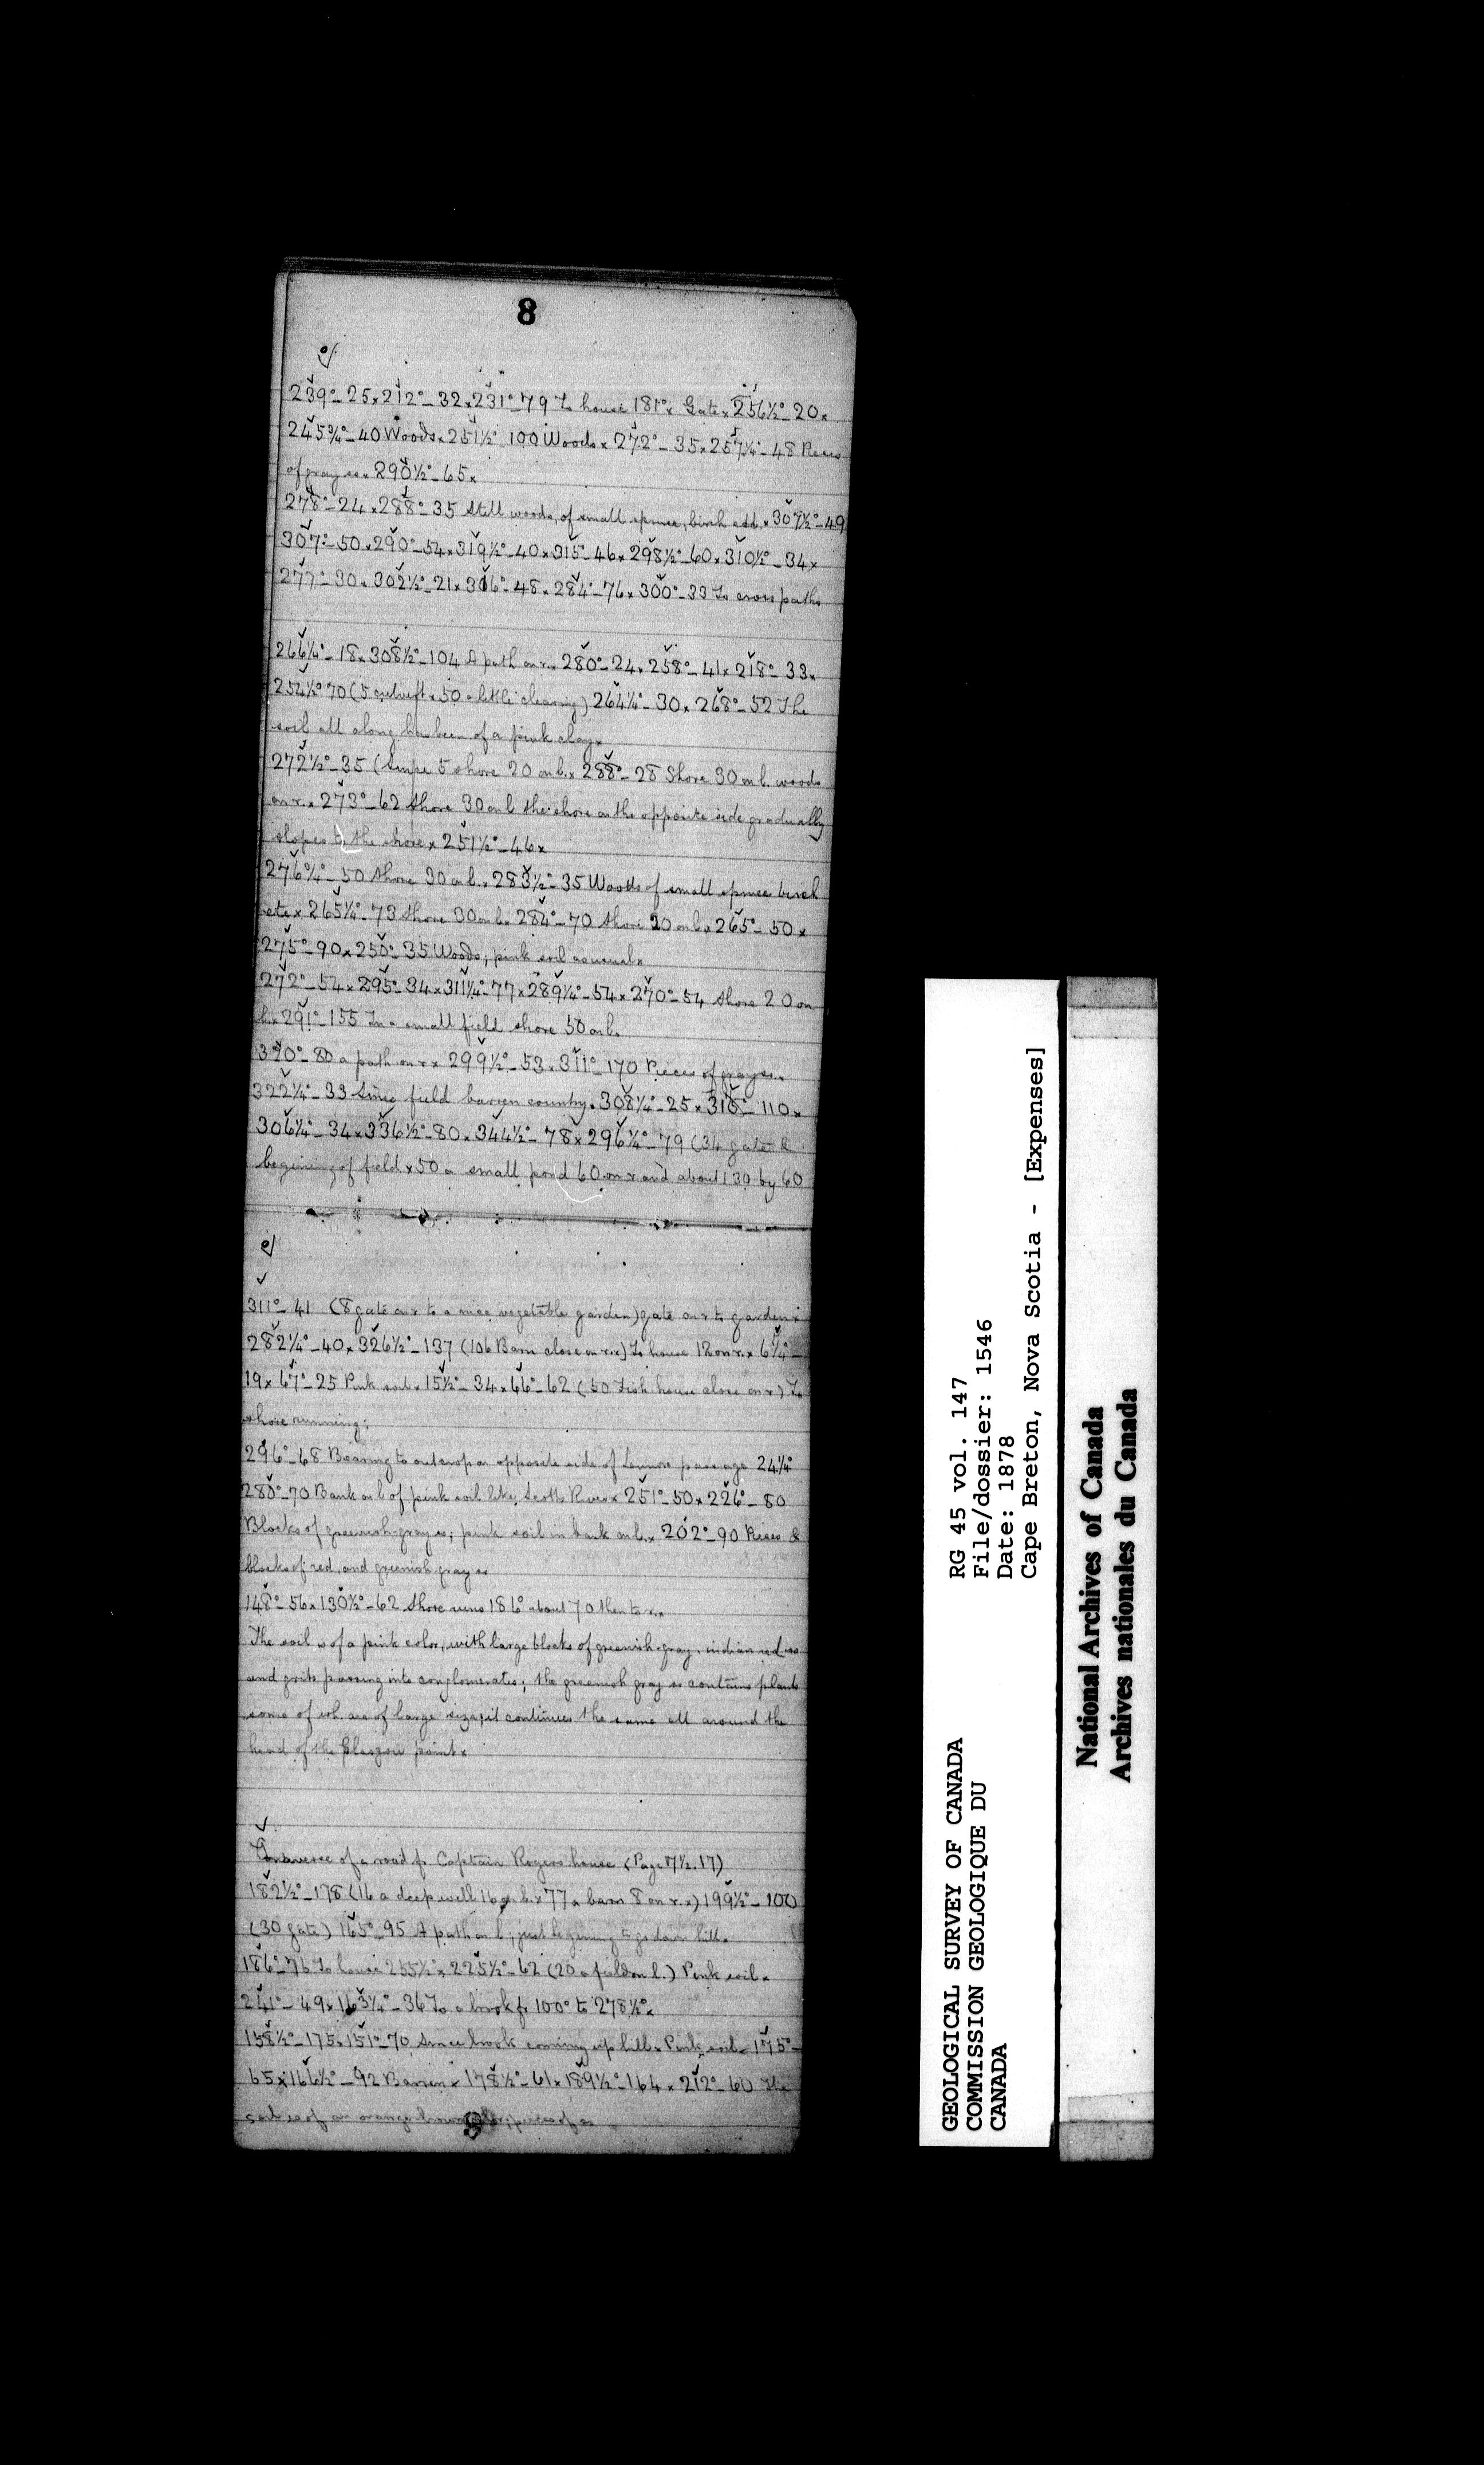 8
239°-25x212°-32x231°-79 To house 181°x Gatex256½°-20x
245¾°-40 Woodsx251½° 100 Woodsx272°-35x257¼°-48 Pieces
of gray ss x 290½°-65x
278°-24x288°-35 Still woods, of small spruce, birch x 307½°-49
307°-50x290°-54x319½°-40x315°-46x298½°-60x310½°-34x
277°-30x302½°-21x306°-48x284°-76x300°-33 To cross paths
266¼°-18x308½°-104 A path on r.x 280°-24x258°-41x218°-33x
254½° 70 (5 culvert x 50 a little clearing) 264¼°-30x268°-52 The
soil all along has been of a pink clayx
272½°-35 (5 shore 20 on l.x 288°-28 Shore 30 on l. woods
on r.x 273°-62 Shore 30 on l the shore on the opposite side gradually
slopes to the shore x 251½°-46x
276¾°-50 Shore 30 on l.x 283½°-35 Woods of small spruce birch
etcx 265¼°-73 Shore 30 on l.x 284°-70 Shore 20 on l.x 265°-50x
275°-90x250°-35 Woods; pink soil as usualx
272°-54x295°-34x311¼°-77x289¼°-54x270°-54 Shore 20 on
l.x 291°-155 In a small field shore 50 on l.
80 a path on rx 299½°-53x311°-170 Pieces of gray ss x
322¼°-33 Since field barren country. 308¼°-25x 110x
306¼°-34x336½°-80x344½°-78x296¼°-79 (34 gate &
begining of field x 50 a small pond 60 on r and about 130 by 60
311°-41 (8 gate on r to a nice vegetable garden) gate on r to garden x
282¼°-40x326½°-137 (106 Barn close on r.x) To house 12 on r.x 6¼°-
19x67°-25 Pink soilx15½°-34x66°-62 (50 Fish house close on r) To
shore running:
296°-68 Bearing to outcrop on opposite side of Lennox passage 24¼°
280°-70 Bank on l of pink soil like Scotts Riverx 251°-50x226°-80
Blocks of greenish-gray ss; pink soil in bank on l.x 202°-90 Pieces &
blocks of red, and greenish gray ss
148°-56x130½°-62 Shore runs 186° about 70 then to r.x
The soil is of a pink color, with large blocks of greenish-gray, indian red ss
and grits passing into conglomerates; the greenish gray ss contains plants
some of wh. are of large size; it continues the same all around the
head of the Glasgow pointx
Traverse of a road fr Captain Rogers house (Page 7½.17)
182½°-178 (16 a deep well 16 on l.x 77 a barn 8 on r.x) 199½°-100
(30 gate) 165°-95 A path on l, just begining to go down hillx
186°-76 To house 255½°x 225½°-62 (20 a field on l.) Pink soilx
241°-49x163¼°-36 To a brook fr 100° to 278½°x
158½°-175x151°-70 Since brook coming up hillx Pink soilx 175°-
65x166½°-92 Barrenx 178½°-61x189½°-164x212°-60 The
soil is of an orange brown color; pieces of ss
GEOLOGICAL SURVEY OF CANADA
COMMISSION GEOLOGIQUE DU
CANADA
RG 45 vol. 147
File/dossier: 1546
Date: 1878
Cape Breton, Nova Scotia - [Expenses]
National Archives of Canada
Archives nationales du Canada